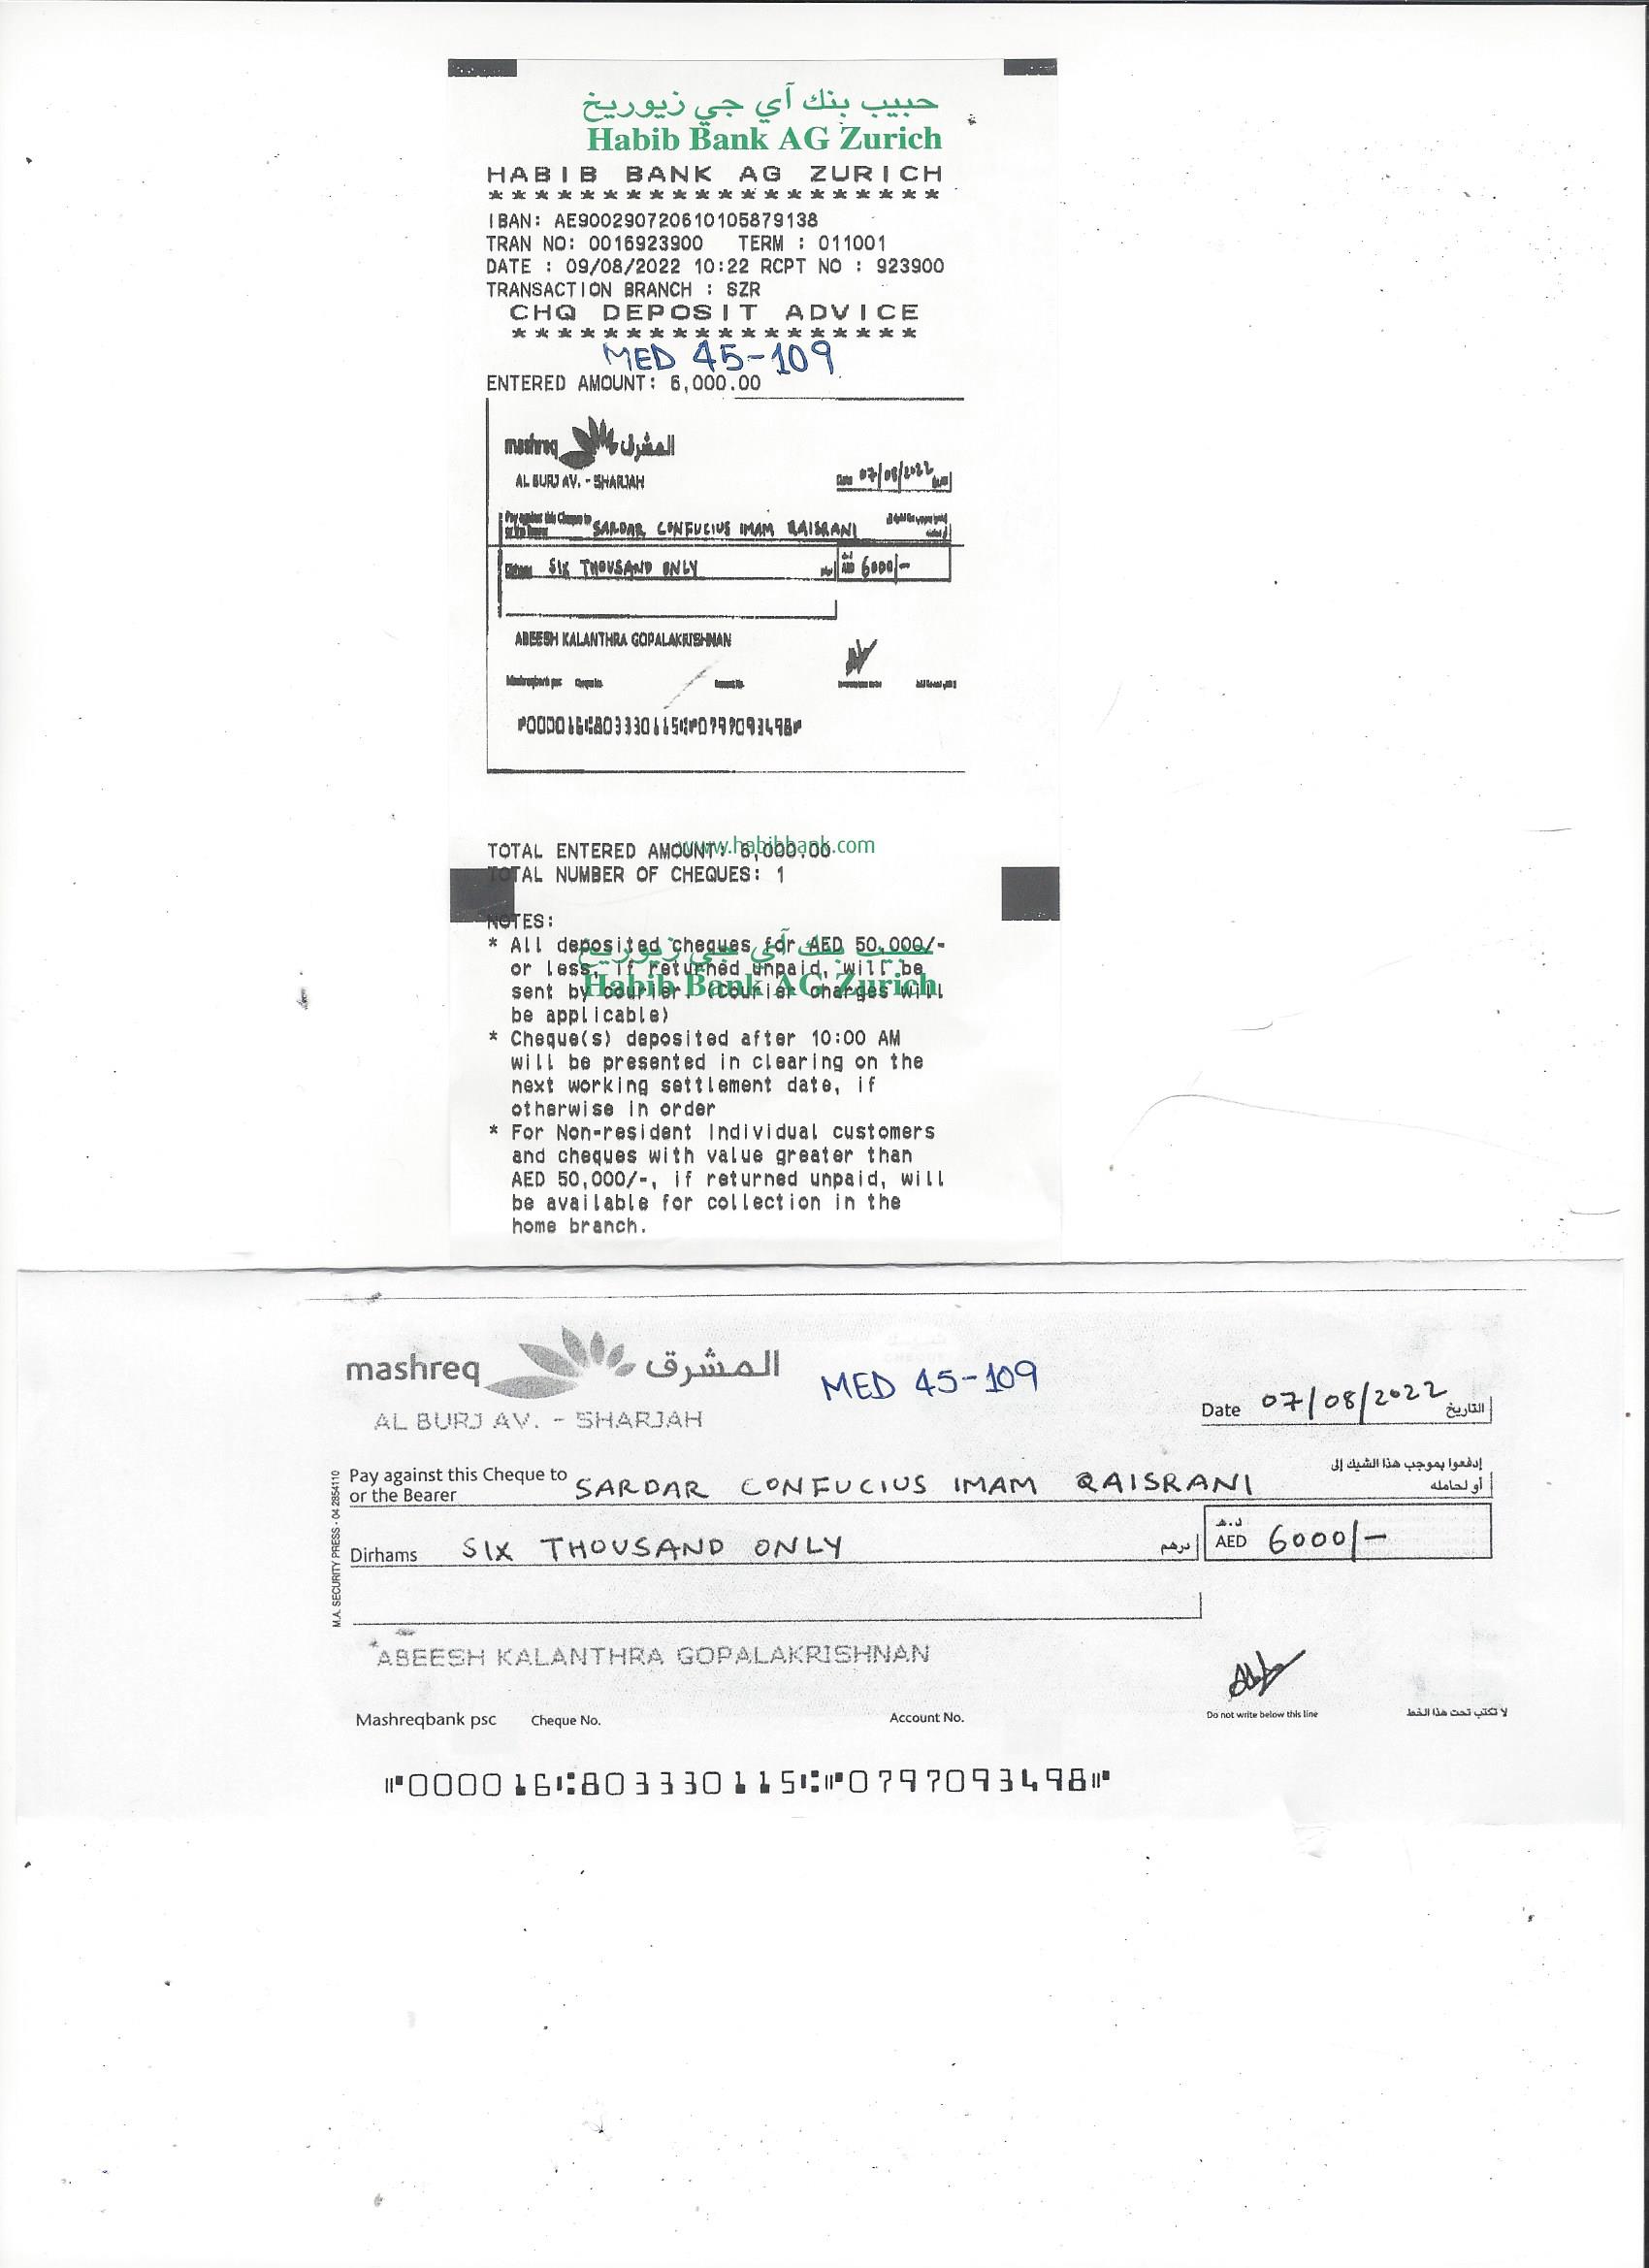 حبيب بنك آي جي زيوريخ
Habib Bank AG Zurich
HABIB BANK AG ZURICH
********************
IBAN: AE900290720610105879138
TRAN NO: 0016923900 TERM : 011001
DATE : 09/08/2022 10:22 RCPT NO : 923900
TRANSACTION BRANCH : SZR
CHQ DEPOSIT ADVICE
******************
MED 45-109
ENTERED AMOUNT: 6,000.00
mashreq المشرق
AL BURJ AV. - SHARJAH
Date 07/08/2022
Pay against this Cheque to
or the Bearer SARDAR CONFUCIUS IMAM QAISRANI
Dirhams SIX THOUSAND ONLY AED 6000/-
ABEESH KALANTHRA GOPALAKRISHNAN
Mashreqbank psc Cheque No. Account No.
⑈000016⑆803330115⑆⑈0797093498⑈
www.habibbank.com
TOTAL ENTERED AMOUNT: 6,000.00
TOTAL NUMBER OF CHEQUES: 1
NOTES:
* All deposited cheques for AED 50,000/-
حبيب بنك آي جي زيوريخ
or less, if returned unpaid, will be
sent by courier. (Courier charges will
Habib Bank AG Zurich
be applicable)
* Cheque(s) deposited after 10:00 AM
will be presented in clearing on the
next working settlement date, if
otherwise in order
* For Non-resident Individual customers
and cheques with value greater than
AED 50,000/-, if returned unpaid, will
be available for collection in the
home branch.
mashreq المشرق
MED 45-109
AL BURJ AV. - SHARJAH
Date 07/08/2022 التاريخ
Pay against this Cheque to إدفعوا بموجب هذا الشيك إلى
or the Bearer SARDAR CONFUCIUS IMAM QAISRANI أو لحامله
Dirhams SIX THOUSAND ONLY درهم د.هـ AED 6000/-
M.A. SECURITY PRESS - 04 2854110
ABEESH KALANTHRA GOPALAKRISHNAN
Mashreqbank psc Cheque No. Account No. Do not write below this line لا تكتب تحت هذا الخط
⑈000016⑆803330115⑆⑈0797093498⑈